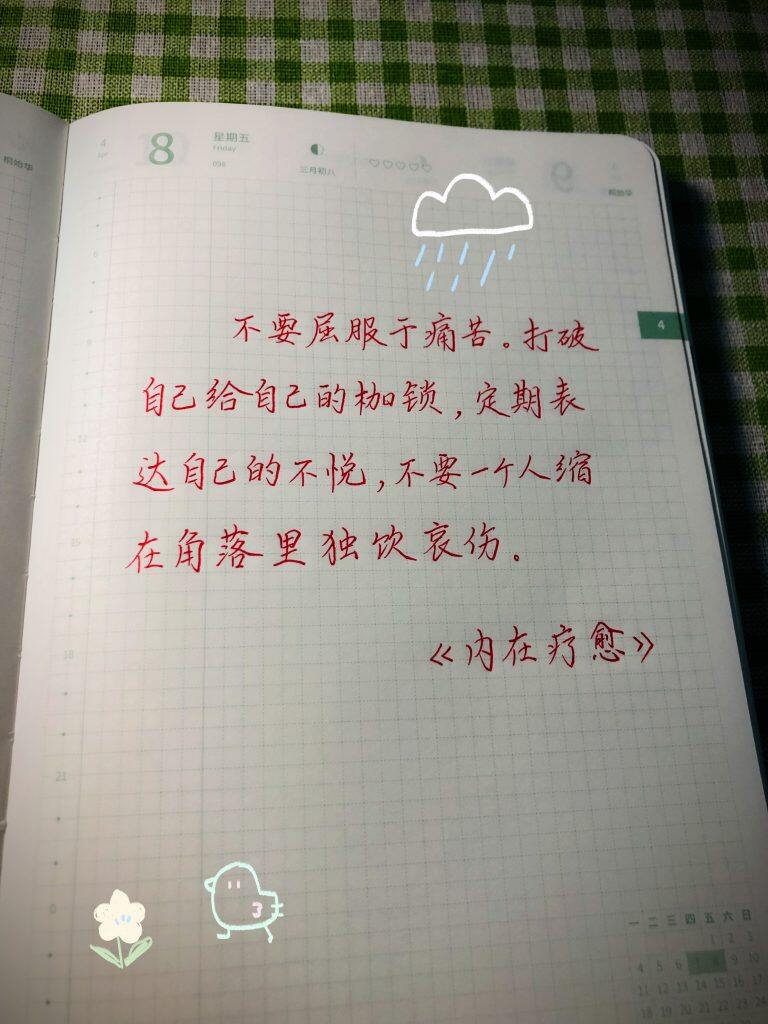 桐始华
4
Apr
8
星期五
Friday
098
三月初八
9
桐始华
4
不要屈服于痛苦。打破
自己给自己的枷锁,定期表
达自己的不悦,不要一个人缩
在角落里独饮哀伤。
《内在疗愈》
6
9
12
15
18
21
0
一 二 三 四 五 六 日
1 2 3
4 5 6 7 8 9 10
11 12 13 14 15 16 17
18 19 20 21 22 23 24